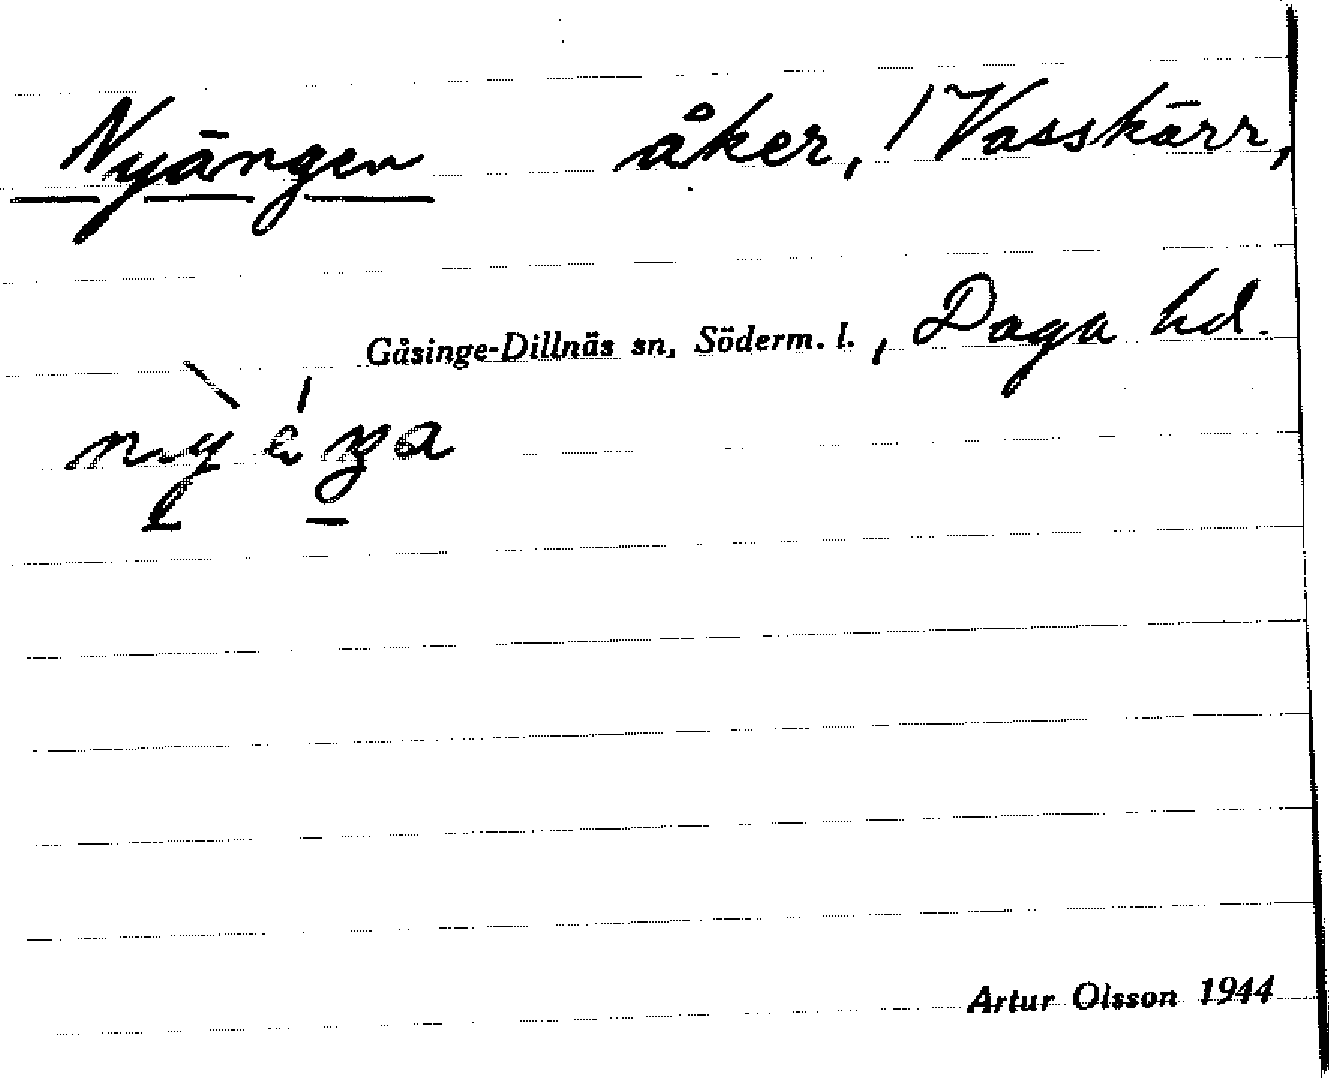 Nyängen åker, / Vasskärr,
Gåsinge-Dillnäs sn, Söderm. l., Daga hd.
Artur Olsson 1944